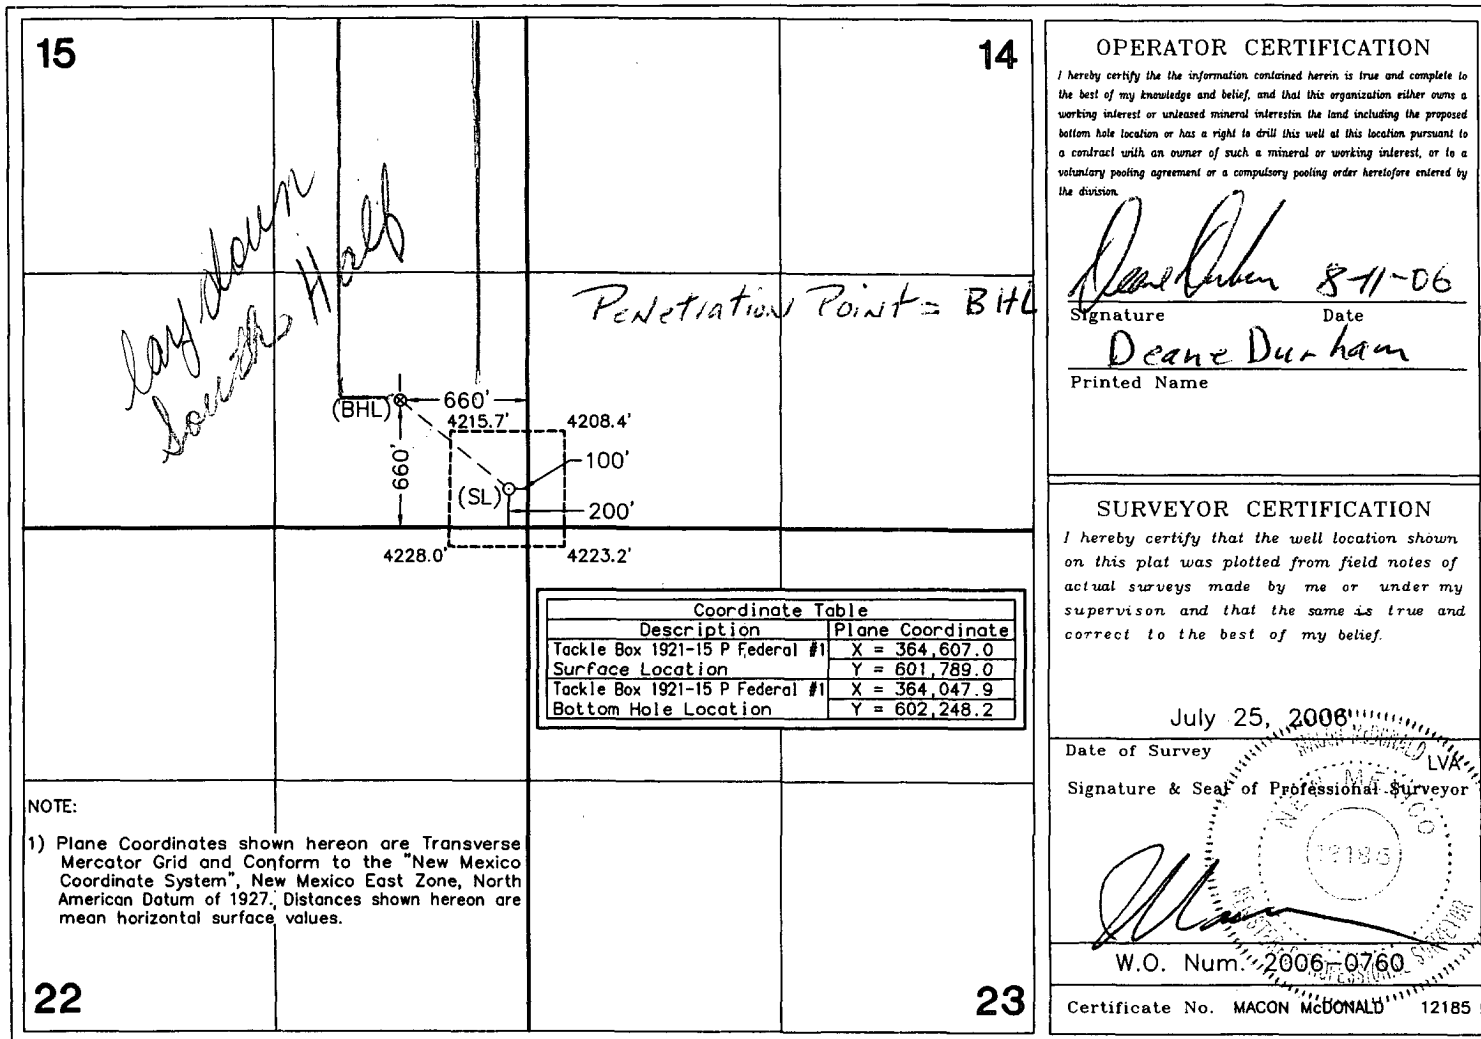 15
14
lay down
South Half
Penetration Point = BHL
(BHL)
660'
4215.7'
4208.4'
660'
100'
(SL)
200'
4228.0'
4223.2'
Coordinate Table
Description Plane Coordinate
Tackle Box 1921-15 P Federal #1 X = 364,607.0
Surface Location Y = 601,789.0
Tackle Box 1921-15 P Federal #1 X = 364,047.9
Bottom Hole Location Y = 602,248.2
NOTE:
1) Plane Coordinates shown hereon are Transverse
Mercator Grid and Conform to the "New Mexico
Coordinate System", New Mexico East Zone, North
American Datum of 1927. Distances shown hereon are
mean horizontal surface values.
22
23
OPERATOR CERTIFICATION
I hereby certify the the information contained herein is true and complete to
the best of my knowledge and belief, and that this organization either owns a
working interest or unleased mineral interestin the land including the proposed
bottom hole location or has a right to drill this well at this location pursuant to
a contract with an owner of such a mineral or working interest, or to a
voluntary pooling agreement or a compulsory pooling order heretofore entered by
the division.
Deane Durham 8-11-06
Signature Date
Deane Durham
Printed Name
SURVEYOR CERTIFICATION
I hereby certify that the well location shown
on this plat was plotted from field notes of
actual surveys made by me or under my
supervison and that the same is true and
correct to the best of my belief.
July 25, 2006
Date of Survey LVA
Signature & Seal of Professional Surveyor
MACON McDONALD
NEW MEXICO
12185
REGISTERED PROFESSIONAL SURVEYOR
W.O. Num. 2006-0760
Certificate No. MACON McDONALD 12185